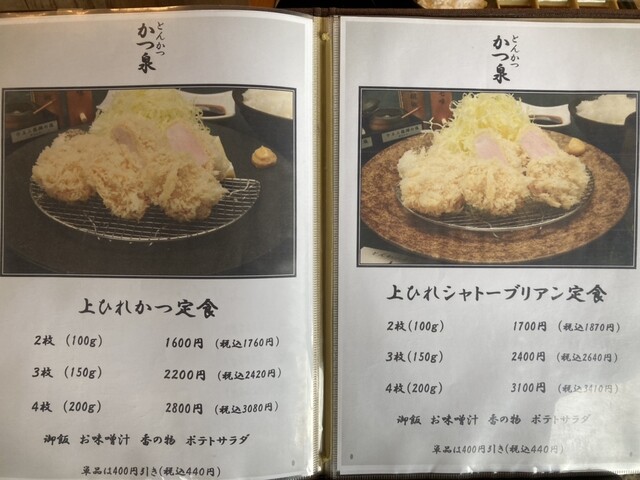 とんかつ
かつ泉
上ひれかつ定食
2枚 (100g) 1600円 (税込1760円)
3枚 (150g) 2200円 (税込2420円)
4枚 (200g) 2800円 (税込3080円)
御飯 お味噌汁 香の物 ポテトサラダ
単品は400円引き(税込440円)
とんかつ
かつ泉
上ひれシャトーブリアン定食
2枚(100g) 1700円 (税込1870円)
3枚(150g) 2400円 (税込2640円)
4枚(200g) 3100円 (税込3410円)
御飯 お味噌汁 香の物 ポテトサラダ
単品は400円引き(税込440円)